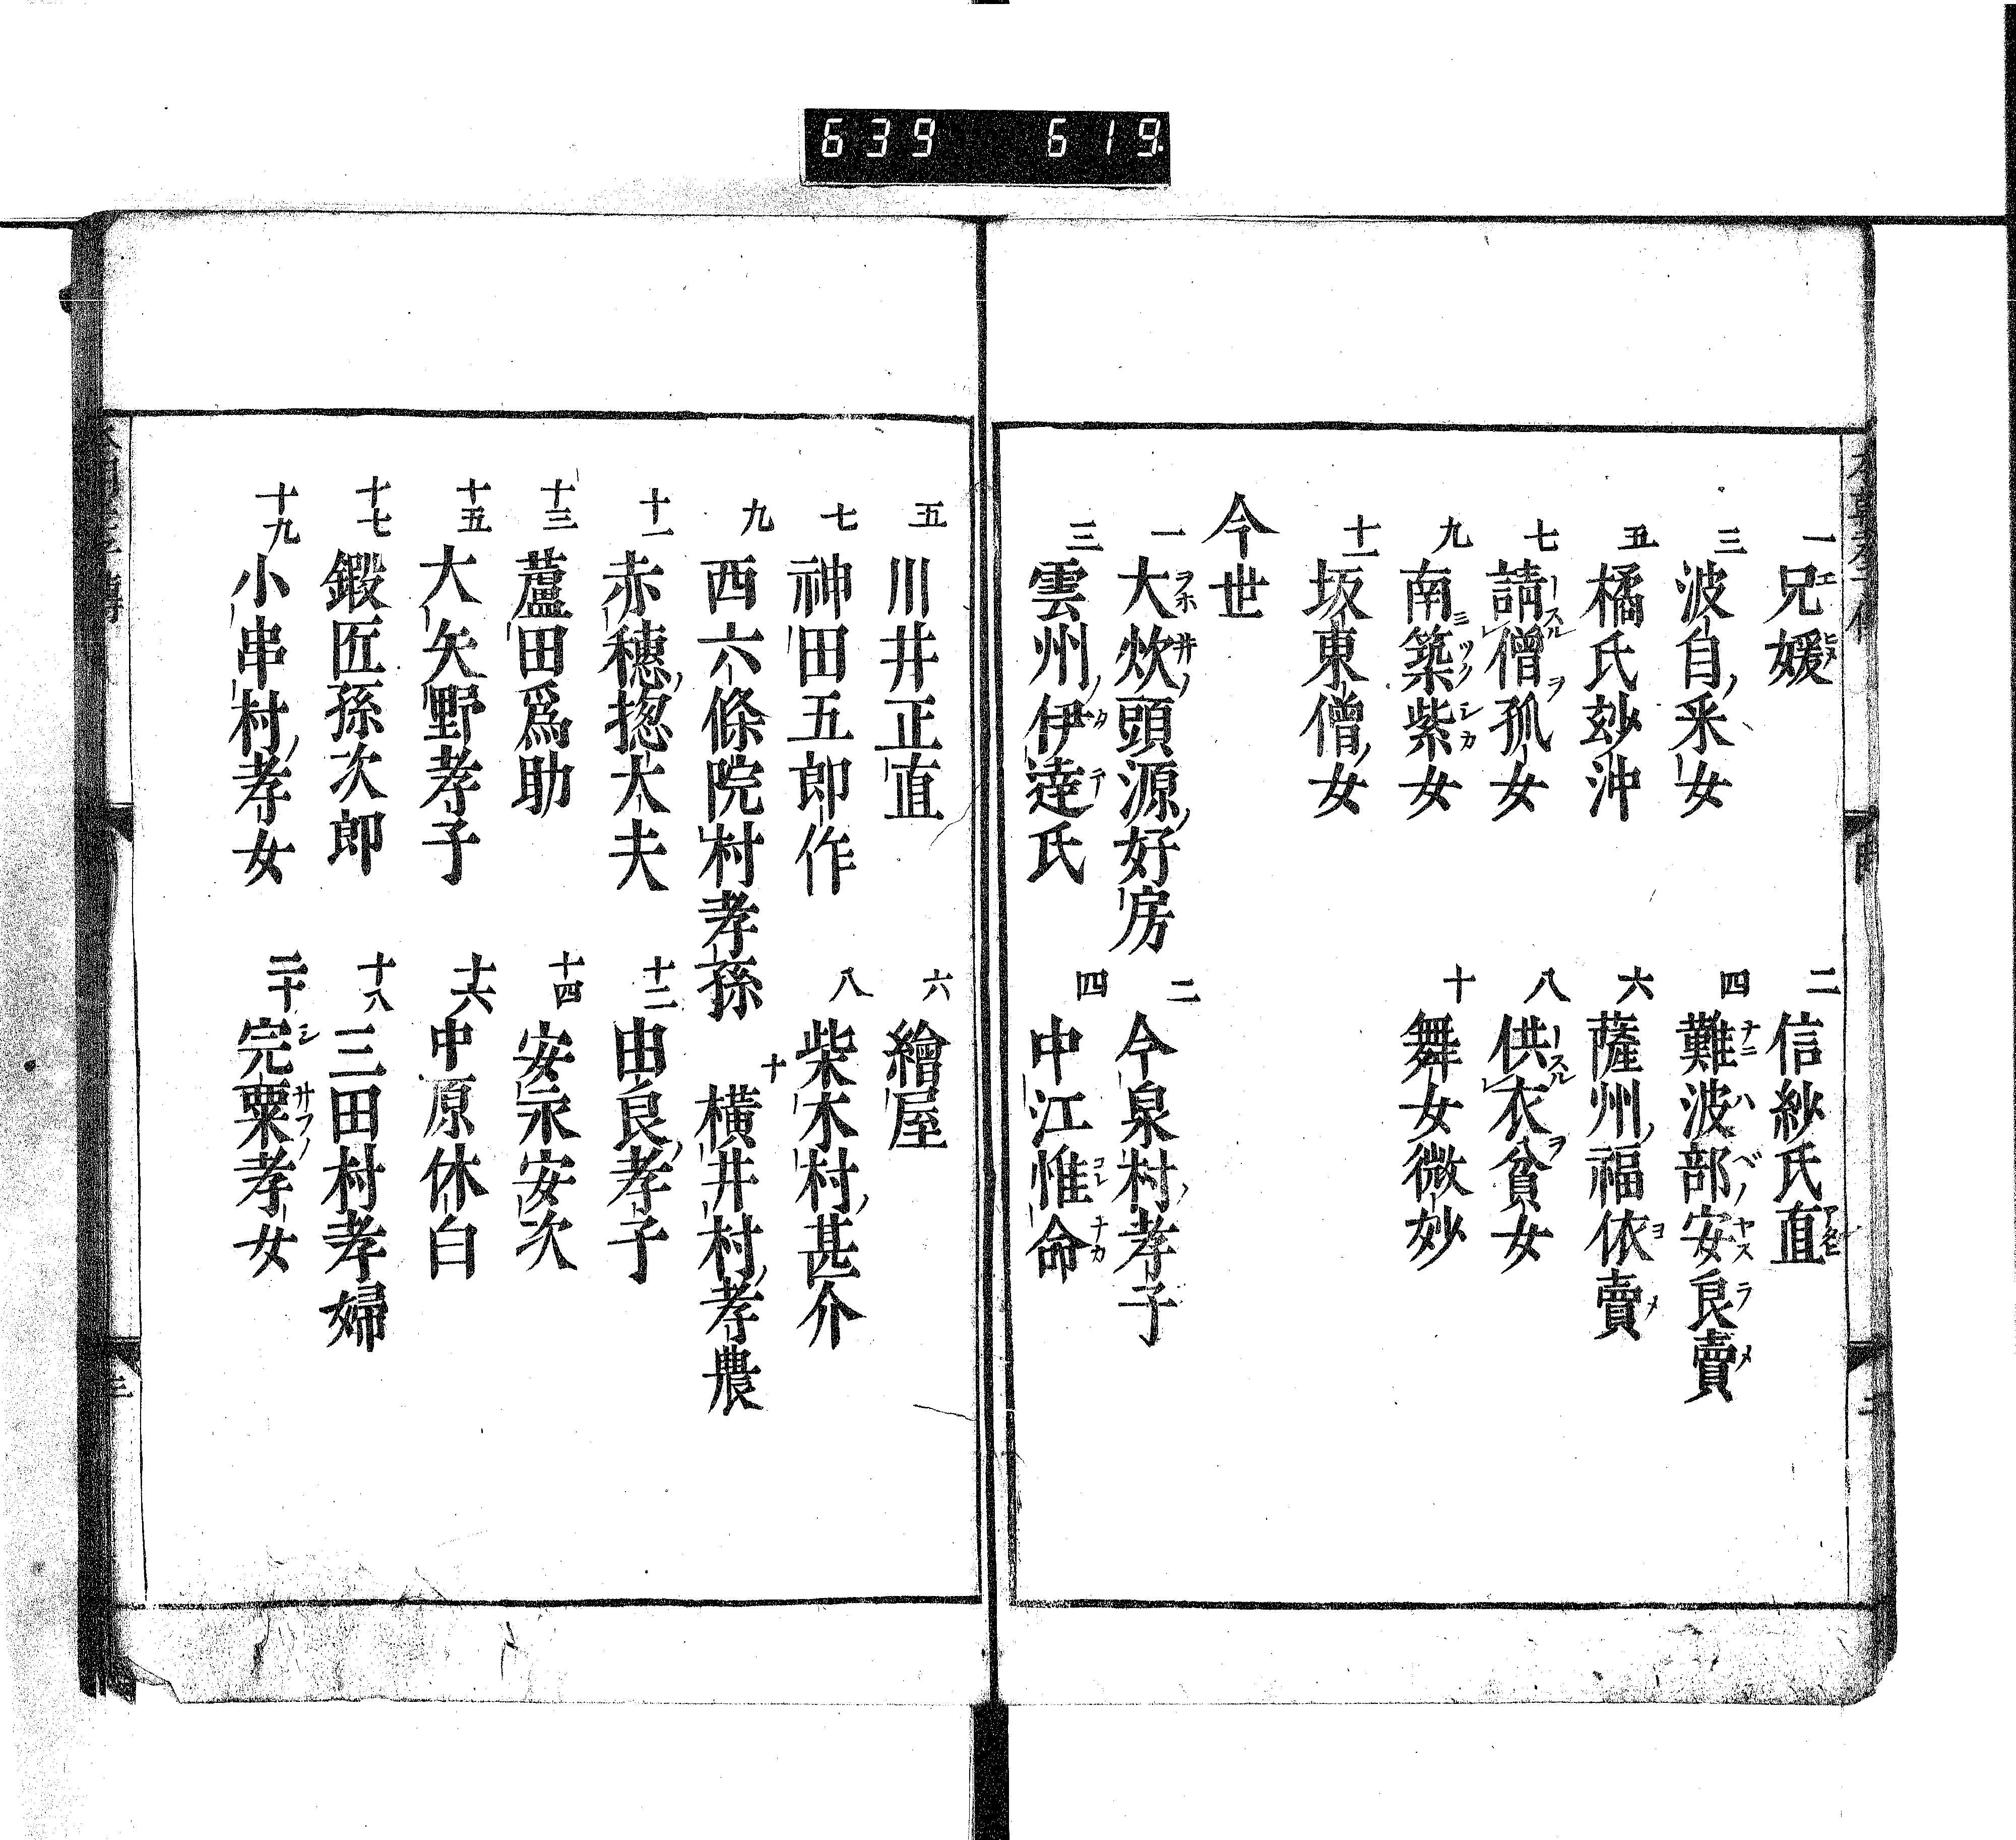 639 619
一 兄媛 二 信紗氏直
三 波自釆女 四 難波部安良賣
五 橘氏玅沖 六 薩州福依賣
七 請僧孤女 八 供衣貧女
九 南築紫女 十 舞女微妙
十一 坂東僧女
今世
一 大炊頭源好房 二 今泉村孝子
三 雲州伊達氏 四 中江惟命
五 川井正直 六 繪屋
七 神田五郎作 八 柴木村甚介
九 西六條院村孝孫 十 横井村孝農
十一 赤穗揔大夫 十二 由良孝子
十三 蘆田爲助 十四 安永安次
十五 大矢野孝子 十六 中原休白
十七 鍛匠孫次郎 十八 三田村孝婦
十九 小串村孝女 二十 完粟孝女